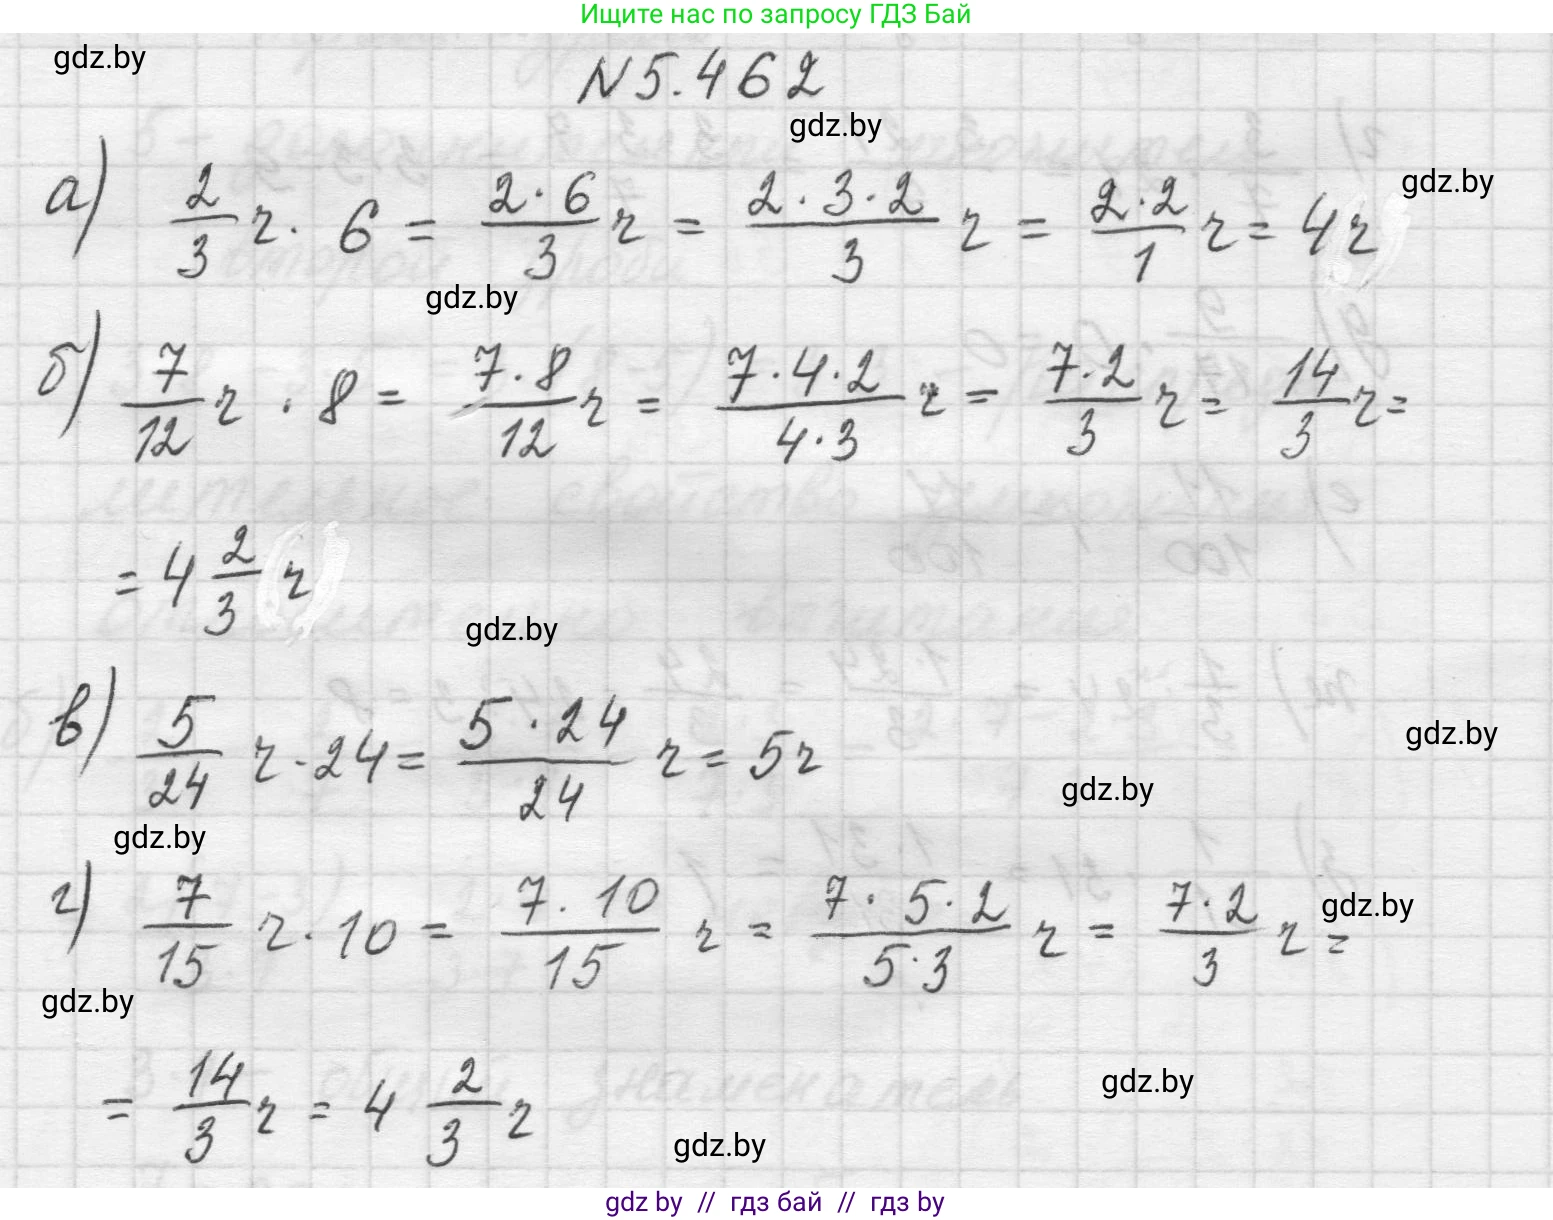 Ищите нас по запросу ГДЗ Бай
gdz.by
N 5.462
gdz.by
gdz.by
а) 2/3 г · 6 = 2·6/3 г = 2·3·2/3 г = 2·2/1 г = 4г
gdz.by
б) 7/12 г · 8 = 7·8/12 г = 7·4·2/4·3 г = 7·2/3 г = 14/3 г =
= 4 2/3 г
gdz.by
в) 5/24 г · 24 = 5·24/24 г = 5г
gdz.by
gdz.by
gdz.by
г) 7/15 г · 10 = 7·10/15 г = 7·5·2/5·3 г = 7·2/3 г =
gdz.by
gdz.by
= 14/3 г = 4 2/3 г
gdz.by
gdz.by
gdz by // гдз бай // гдз by